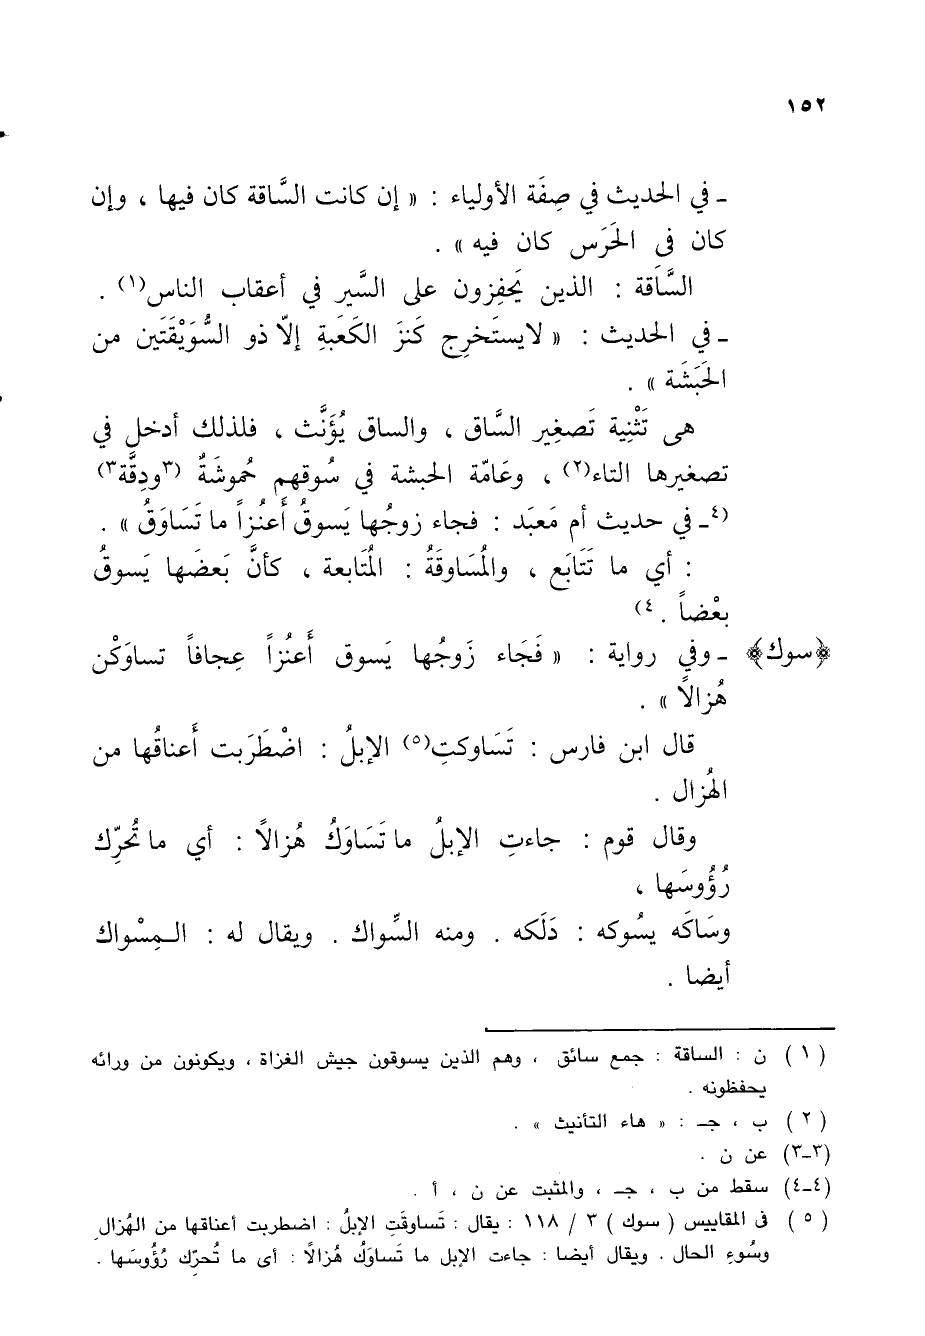 ١٥٢
ـ في الحديث في صِفَة الأولياء : « إن كانت السَّاقة كان فيها ، وإن
كان فى الحَرَس كان فيه » .
السَّاقة : الذين يَحفِزون على السَّير في أعقاب الناس(١) .
ـ في الحديث : « لايستَخرِج كَنزَ الكَعَبةِ إلاّ ذو السُّوَيْقَتَين من
الحَبَشَة » .
هى تَثْنِية تَصغِير السَّاق ، والساق يُؤَنَّث ، فلذلك أدخل في
تصغيرها التاء(٢) ، وعَامّة الحبشة في سُوقهم حُموشَةٌ (٣ودِقَّة٣)
(٤ـ في حديث أم مَعبَد : فجاء زوجُها يَسوقُ أَعنُزاً ما تَسَاوَقُ » .
: أي ما تَتَابَع ، والمُسَاوقَةُ : المُتَابعة ، كأنَّ بَعضَها يَسوقُ
بعْضاً . ٤)
﴿سوك﴾ ـ وفي رواية : « فَجَاء زَوجُها يَسوق أَعنُزاً عِجافاً تساوَكْن
هُزالاً » .
قال ابن فارس : تَسَاوكتِ(٥) الإبلُ : اضْطَرَبت أَعناقُها من
الهُزال .
وقال قوم : جاءتِ الإبلُ ما تَسَاوَكُ هُزالاً : أي ما تُحرِّك
رُؤُوسَها ،
وسَاكَه يسُوكه : دَلَكه . ومنه السِّواك . ويقال له : المِسْواك
أيضا .
(١) ن : الساقة : جمع سائق ، وهم الذين يسوقون جيش الغزاة ، ويكونون من ورائه
يحفظونه .
(٢) ب ، جـ : « هاء التأنيث » .
(٣-٣) عن ن .
(٤-٤) سقط من ب ، جـ ، والمثبت عن ن ، أ .
(٥) فى المقاييس ( سوك ) ٣ / ١١٨ : يقال : تَساوقَتِ الإبلُ : اضطربت أعناقها من الهُزال
وسُوءِ الحال . ويقال أيضا : جاءت الإبل ما تَساوَكُ هُزالاً : أى ما تُحرّك رُؤُوسَها .